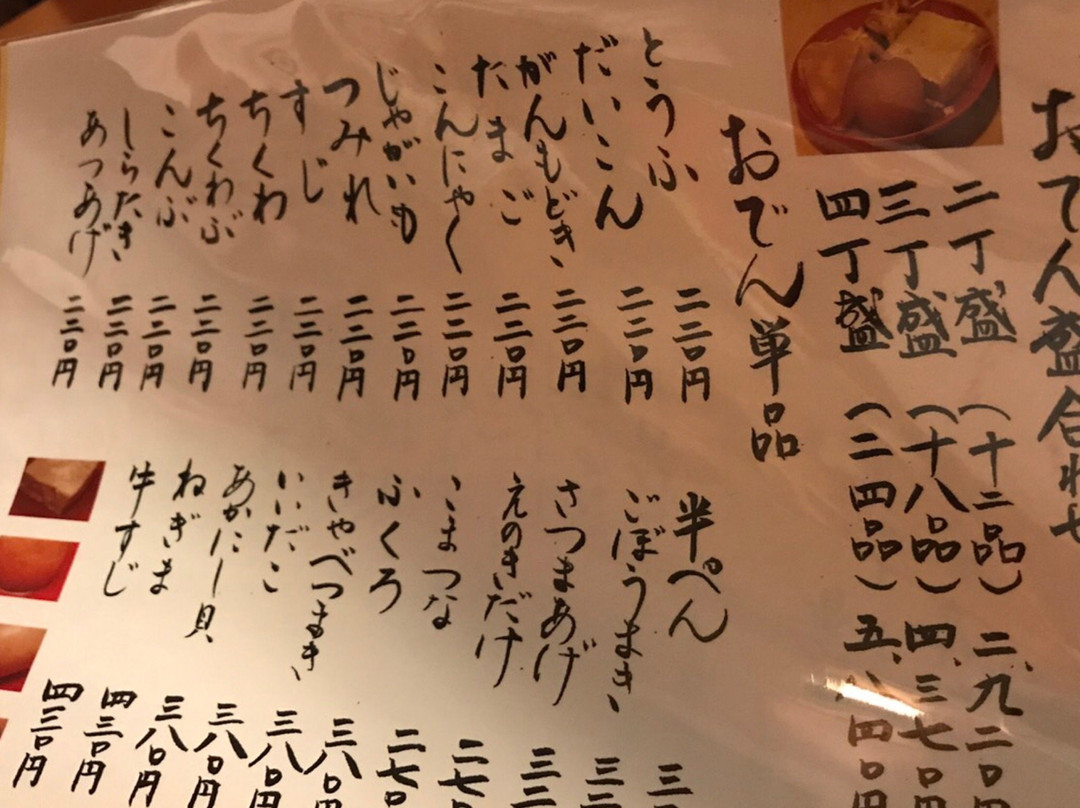 おでん盛合わせ
二丁盛 (十二品) 二、九二0
三丁盛 (十八品) 四、三七0円
四丁盛 (二四品) 五、八四0円
おでん単品
とうふ 二二0円
だいこん 二二0円
がんもどき 二二0円
たまご 二二0円
こんにゃく 二二0円
じゃがいも 二二0円
つみれ 二二0円
すじ 二二0円
ちくわ 二二0円
ちくわぶ 二二0円
こんぶ 二二0円
しらたき 二二0円
あつあげ 二二0円
半ぺん
ごぼうまき
さつまあげ
えのきだけ 二七0
こまつな 二七0
ふくろ 三八0円
きゃべつまき 三八0円
いいだこ 三八0円
あかにし貝 三八0円
ねぎま 四三0円
牛すじ 四三0円